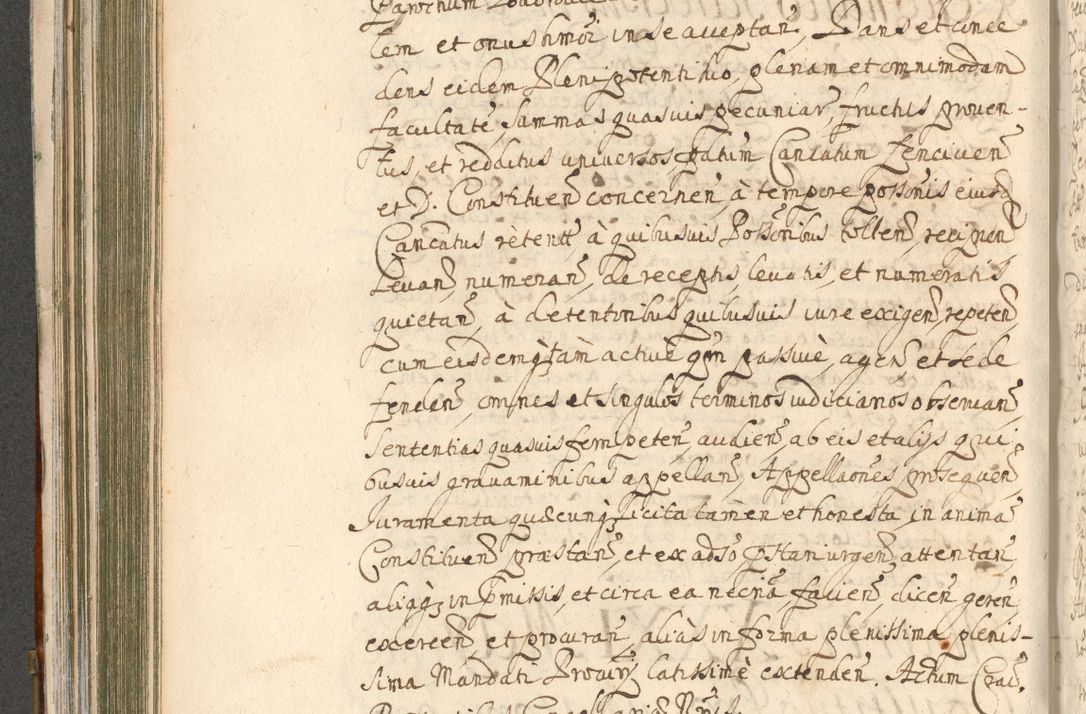 Parochum
lem et onus hmõi in se acceptan̄, Dans et conce
dens eidem Plenipotentiario, plenam et omnimodam
facultatē, summas quasuis pecuniar̄, fructus proven-
tus, et redditus universos, p̄dtum Canōatum
et D. Constituen̄ concernen̄, à tempore possōnis eiusd̄
Canōcatus rètentæ à quibusuis Possōribus tollen̄, recipien̄
Levan̄, numeran̄, de receptis, levatis, et numeratis
quietan̄, à detentoribus quibusuis iure exigen̄, repeten̄,
cum eisdemq̨ tàm activè q̄m passivè, agen̄ et se de
fenden̄, omnes et singulos terminos iudiciarios observan̄,
Sententias quasuis ferri peten̄ audien̄, ab eis et alijs qui
busuis gravaminibus appellan̄, Appellaōnes prosequen̄,
Iuramenta quæcunq̨ licita tamen et honesta, in animā
Constituen̄ præstan̄, et ex adso p̄stan urgen̄, attentan̄,
aliaq̨ in p̄missis, et circa ea necria, facien̄, dicen̄, geren̄,
exercen̄ et procuran̄, aliàs in forma plenissima plenis-
sima Mandati latissimè extenden̄. Actum Crac̄.